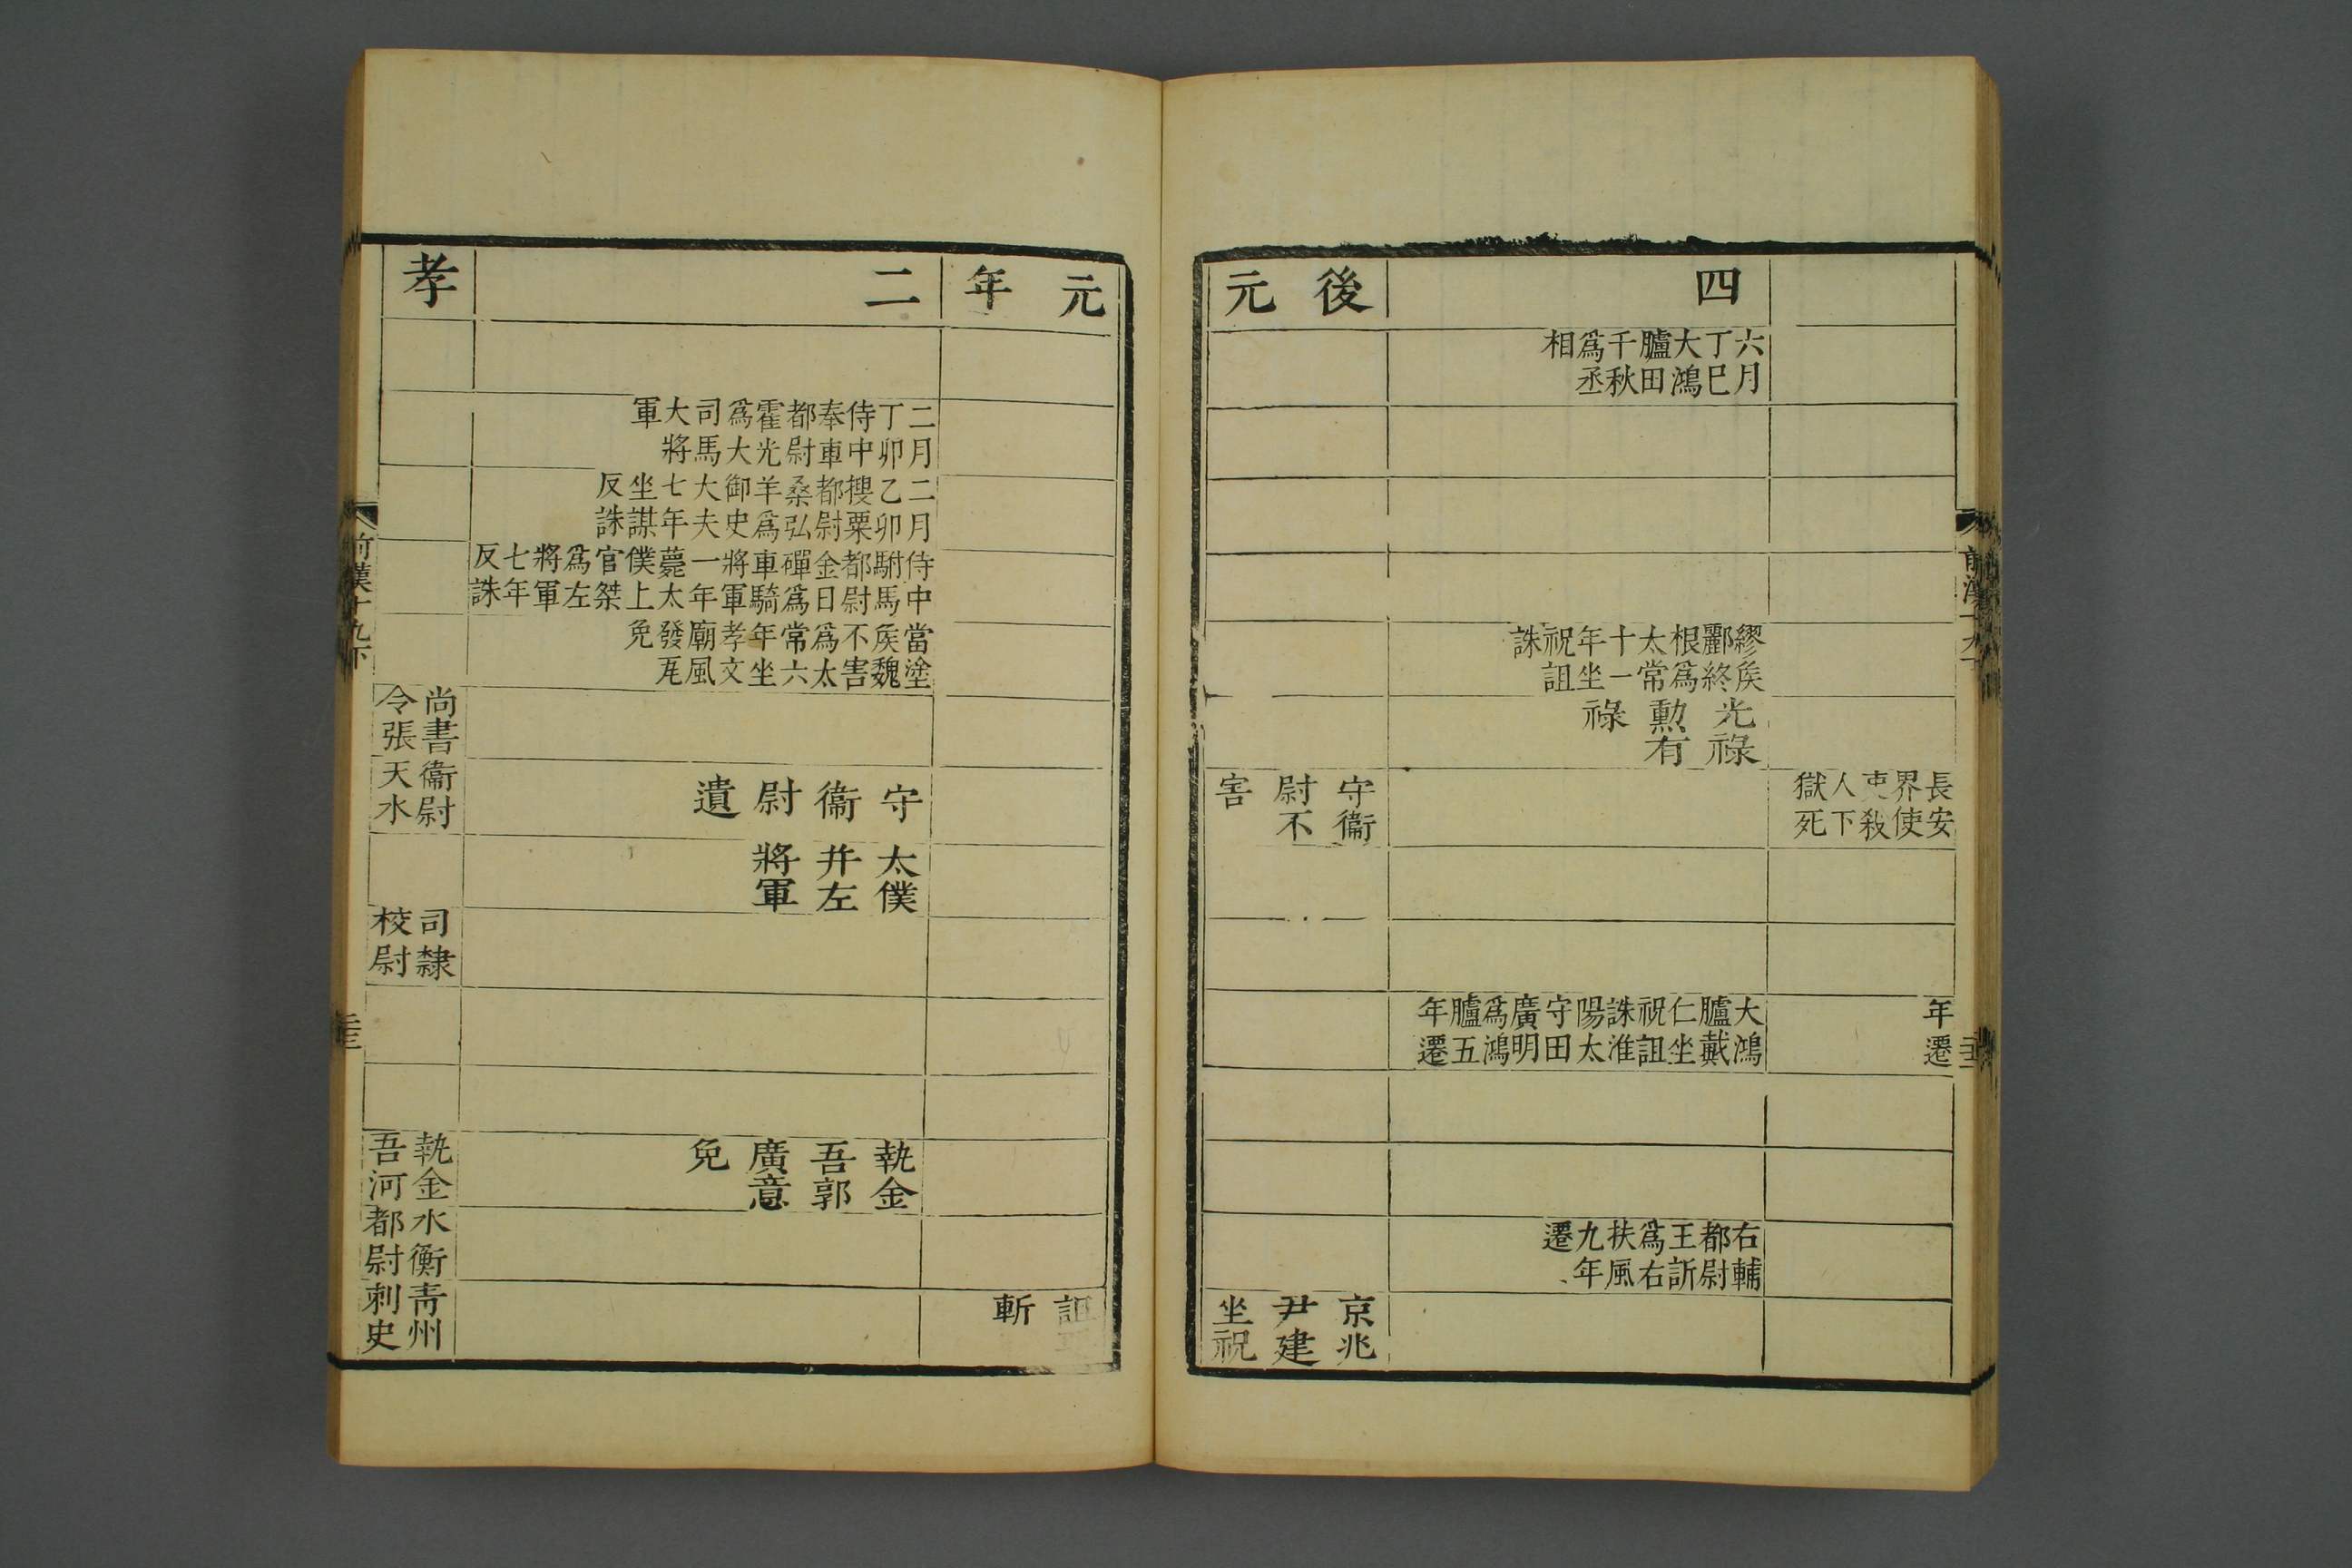 前漢十九下
長安界使吏殺人下獄死
年遷
四
六月丁巳大鴻臚田千秋爲丞相
繆矦酈終根爲太常十一年坐祝詛誅
光祿勳有祿
大鴻臚戴仁坐祝詛誅淮陽太守田廣明爲鴻臚五年遷
右輔都尉王訢爲右扶風九年遷
後元
守衞尉不害
京兆尹建坐祝
元年
詛斬
二
二月丁卯侍中奉車都尉霍光爲大司馬大將軍
二月乙卯搜粟都尉桑弘羊爲御史大夫七年坐謀反誅
侍中駙馬都尉金日磾爲車騎將軍一年薨太僕上官桀爲左將軍七年反誅
當塗矦魏不害爲太常六年坐孝文廟風發瓦免
守衞尉遺
太僕幷左將軍
執金吾郭廣意免
孝
尚書令張
衞尉天水
司隸校尉
執金吾河
水衡都尉
青州刺史
前漢十九下